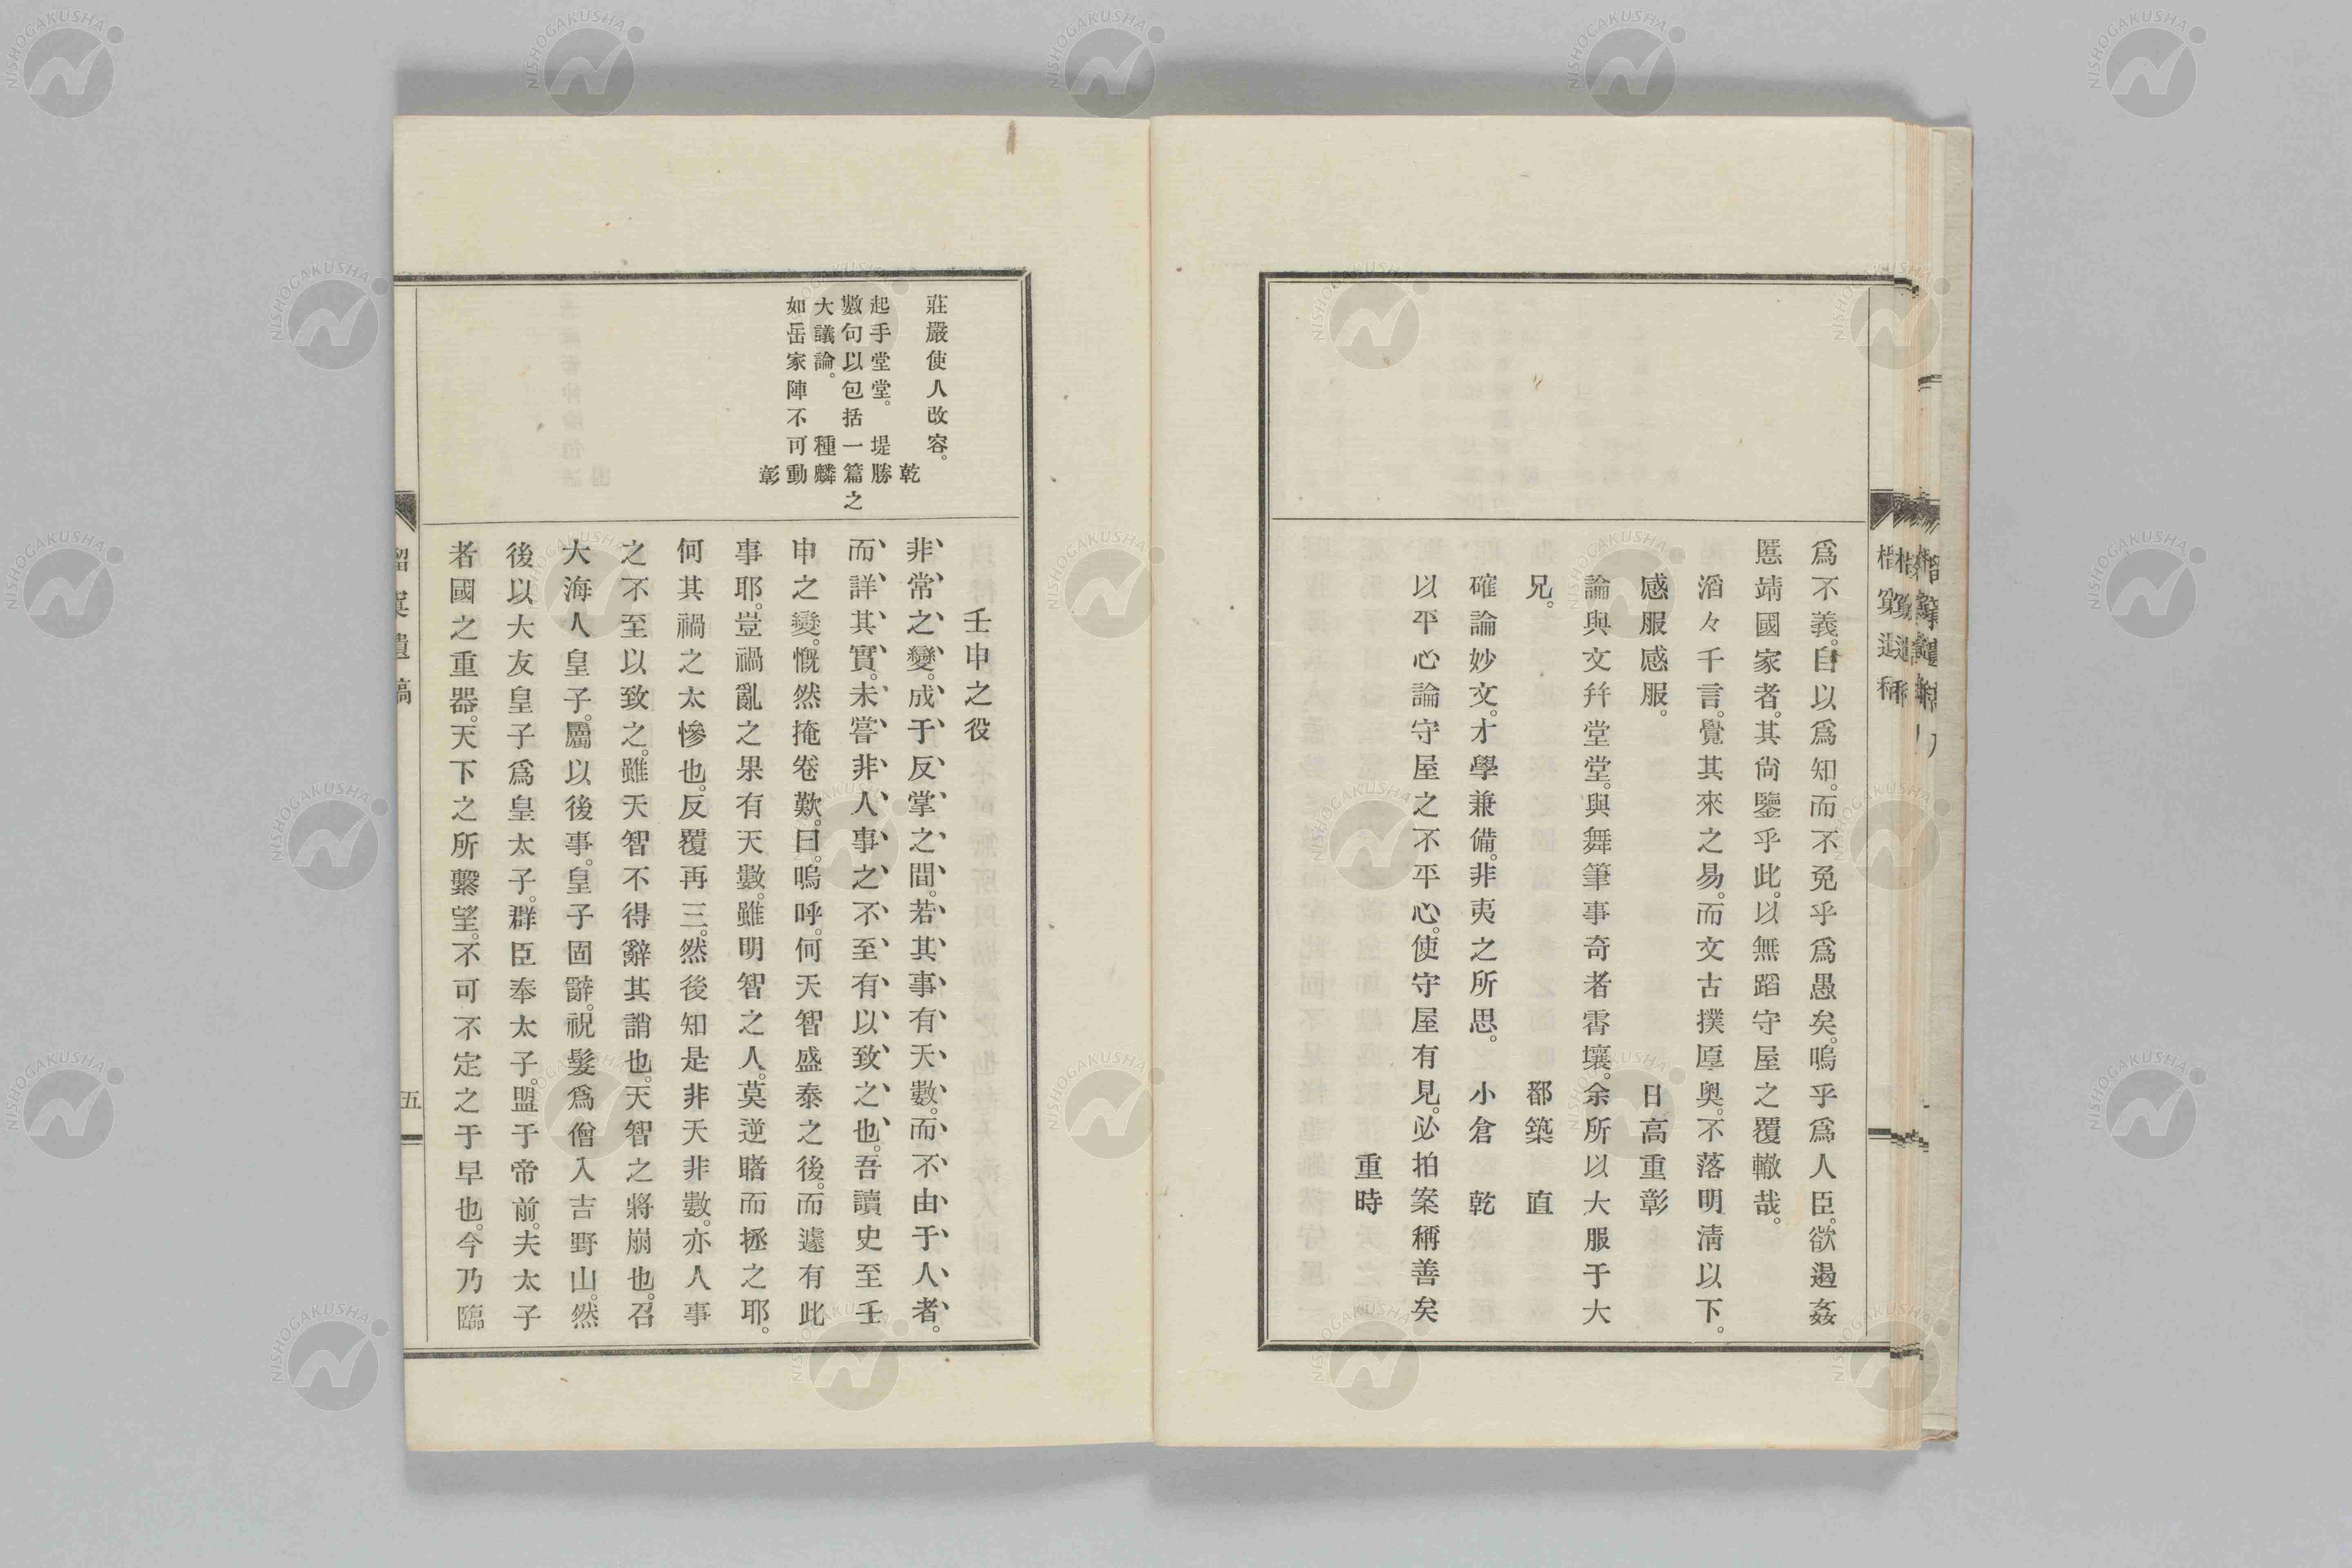 爲不義。自以爲知。而不免乎爲愚矣。嗚乎爲人臣。欲遏姦
慝靖國家者。其尙鑒乎此。以無蹈守屋之覆轍哉。
滔々千言。覺其來之易。而文古撲厚奧。不落明淸以下。
感服感服。 日高重彰
論與文幷堂堂。與舞筆事奇者霄壤。余所以大服于大
兄。 郡築 直
確論妙文。才學兼備。非夷之所思。 小倉 乾
以平心論守屋之不平心。使守屋有見。必拍案稱善矣
重時
莊嚴使人改容。
乾
起手堂堂。 堤勝
數句以包括一篇之
大議論。 種麟
如岳家陣不可動
彰
壬申之役
非常之變。成于反掌之間。若其事有天數。而不由于人者。
而詳其實。未嘗非人事之不至有以致之也。吾讀史至壬
申之變。慨然掩卷歎。曰。嗚呼。何天智盛泰之後。而遽有此
事耶。豈禍亂之果有天數。雖明智之人。莫逆睹而拯之耶。
何其禍之太慘也。反覆再三。然後知是非天非數。亦人事
之不至以致之。雖天智不得辭其誚也。天智之將崩也。召
大海人皇子。屬以後事。皇子固辭。祝髮爲僧入吉野山。然
後以大友皇子爲皇太子。群臣奉太子。盟于帝前。夫太子
者國之重器。天下之所繫望。不可不定之于早也。今乃臨
五
NISHOGAKUSHA